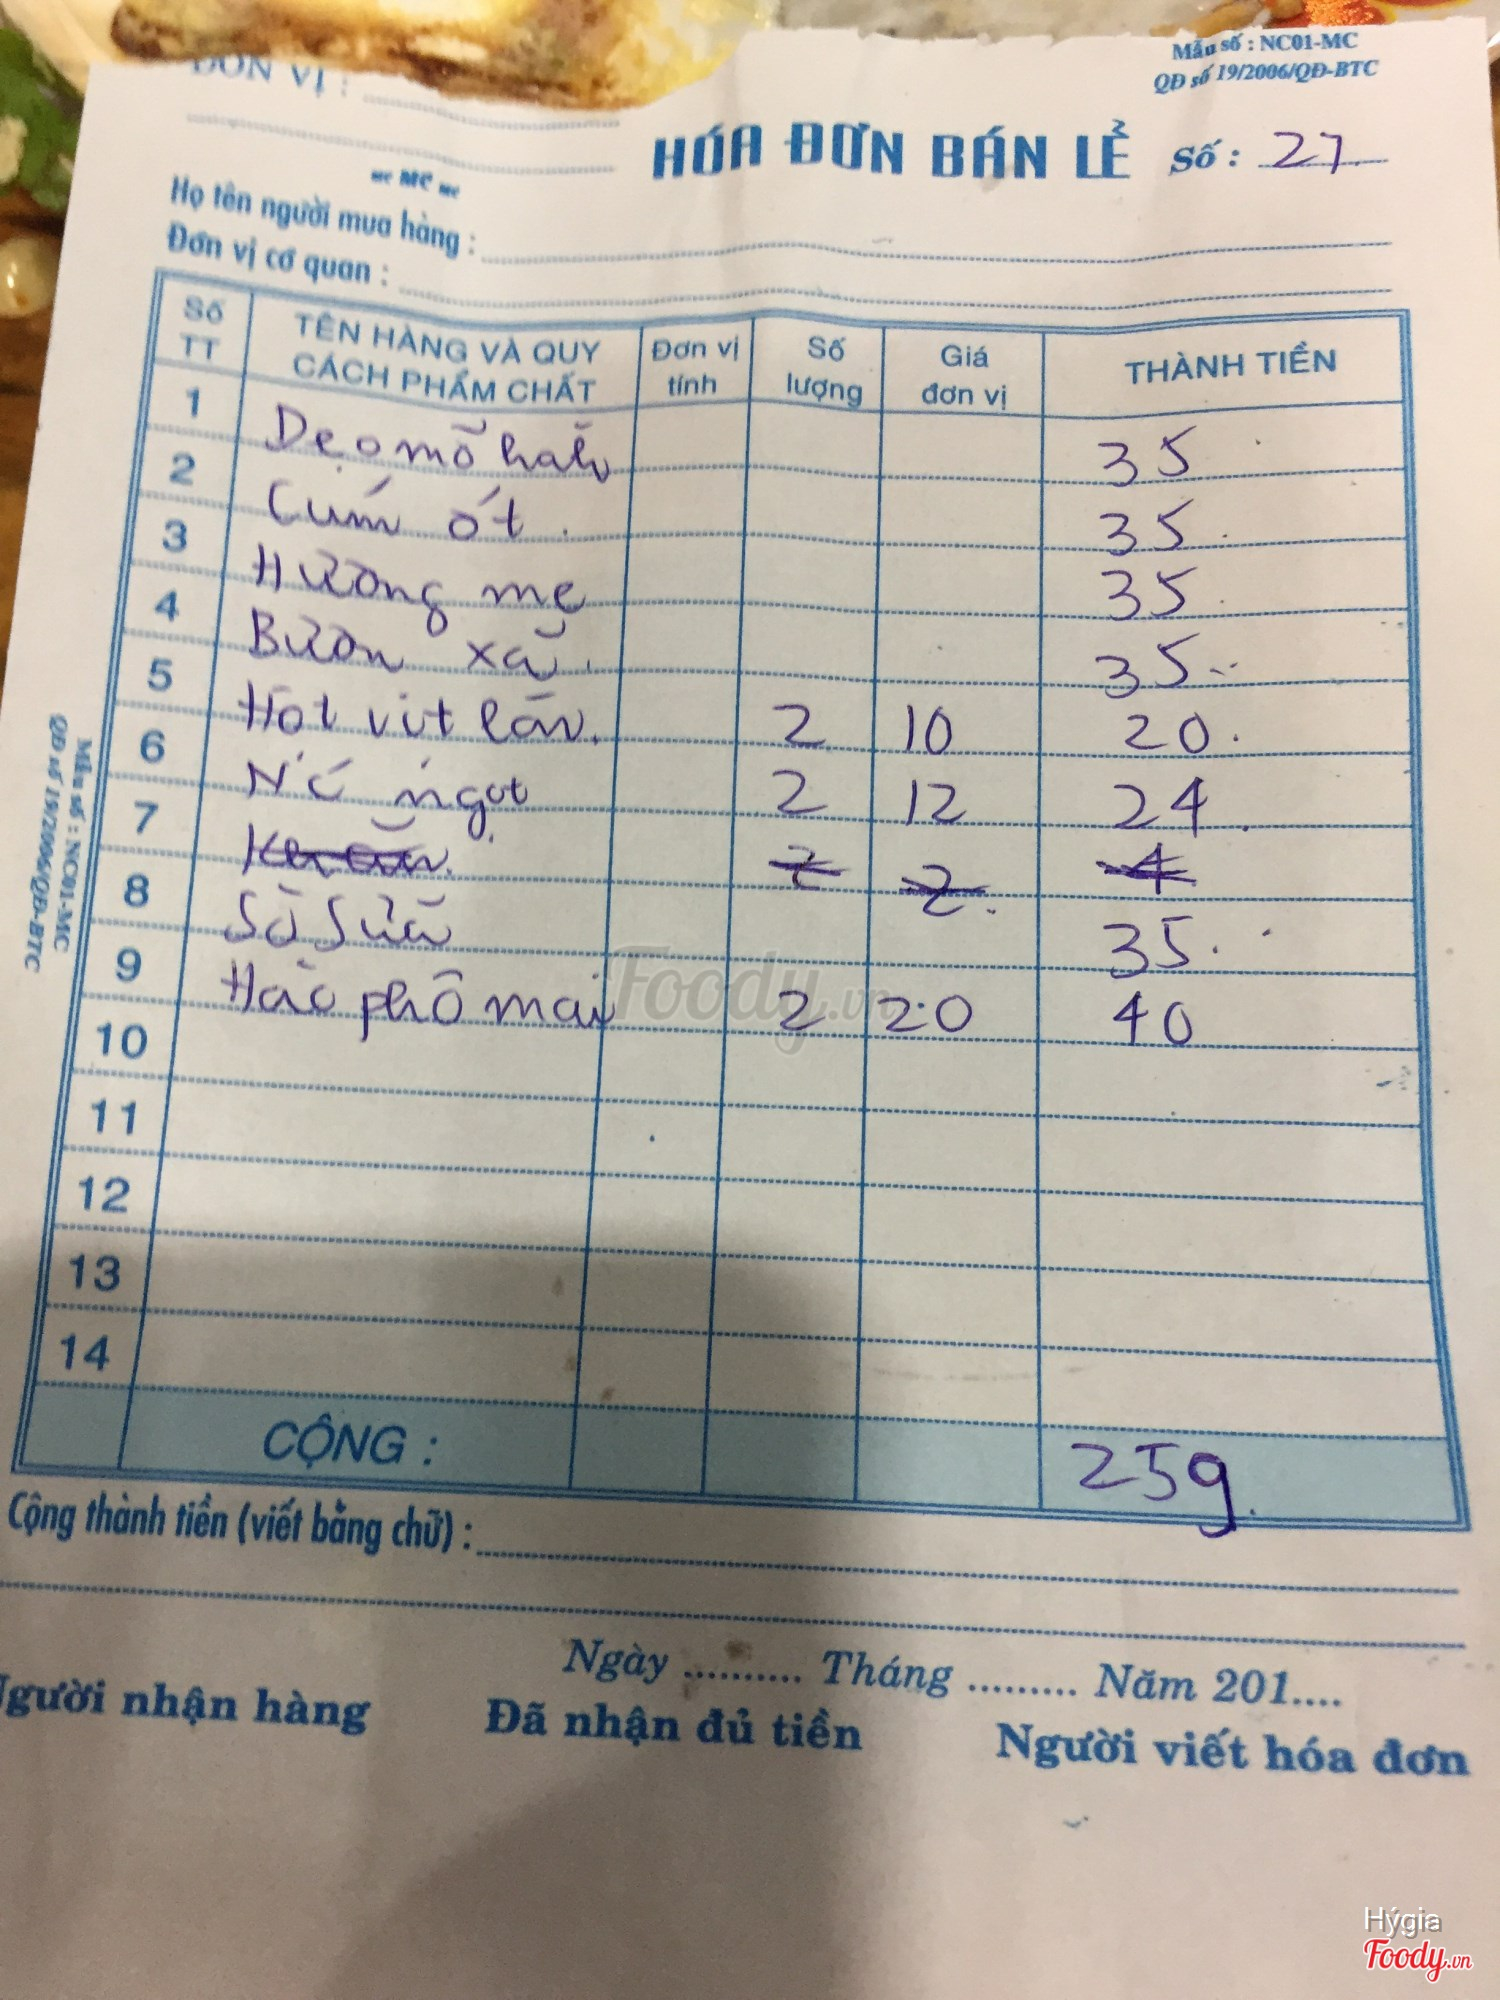 Mẫu số : NC01-MC
QĐ số 19/2006/QĐ-BTC
ĐƠN VỊ :
HÓA ĐƠN BÁN LẺ Số : 27
MC
Họ tên người mua hàng :
Đơn vị cơ quan :
Số TT TÊN HÀNG VÀ QUY CÁCH PHẨM CHẤT Đơn vị tính Số lượng Giá đơn vị THÀNH TIỀN
1 Dẹo mỡ hành 35
2 Cúm ốt 35
3 Hương mẹ 35
4 Bươn xã 35
5 Hột vịt lộn 2 10 20
6 Nc ngọt 2 12 24
7 2 2 4
8 Sò Sữa 35
9 Hào phô mai 2 20 40
10
11
12
13
14
CỘNG : 259
Cộng thành tiền (viết bằng chữ) :
Ngày .......... Tháng ......... Năm 201....
Người nhận hàng Đã nhận đủ tiền Người viết hóa đơn
Mẫu số : NC01-MC
QĐ số 19/2006/QĐ-BTC
Foody.vn
Hýgia
Foody.vn